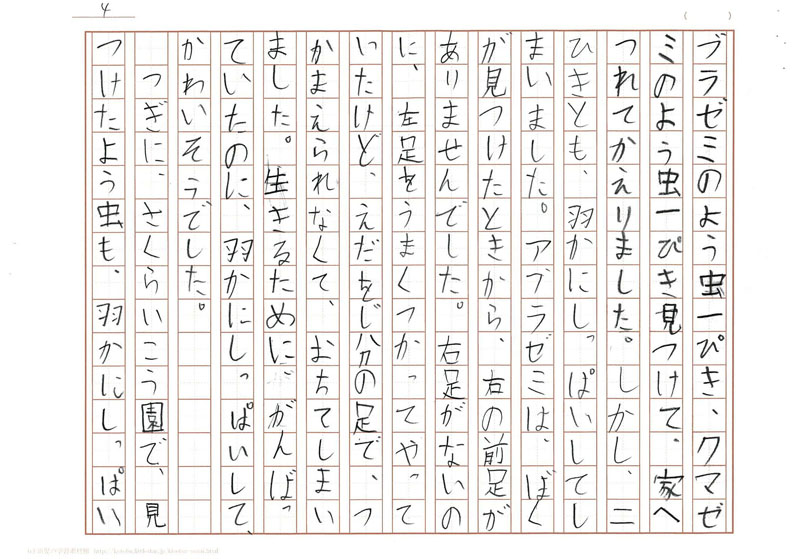 4
(　　)
ブラゼミのよう虫一ぴき、クマゼ
ミのよう虫一ぴき見つけて、家へ
つれてかえりました。しかし、二
ひきとも、羽かにしっぱいしてし
まいました。アブラゼミは、ぼく
が見つけたときから、右の前足が
ありませんでした。右足がないの
に、左足をうまくつかってやって
いたけど、えだをじ分の足で、つ
かまえられなくて、おちてしまい
ました。生きるためにがんばっ
ていたのに、羽かにしっぱいして、
かわいそうでした。
つぎに、さくらいこう園で、見
つけたよう虫も、羽かにしっぱい